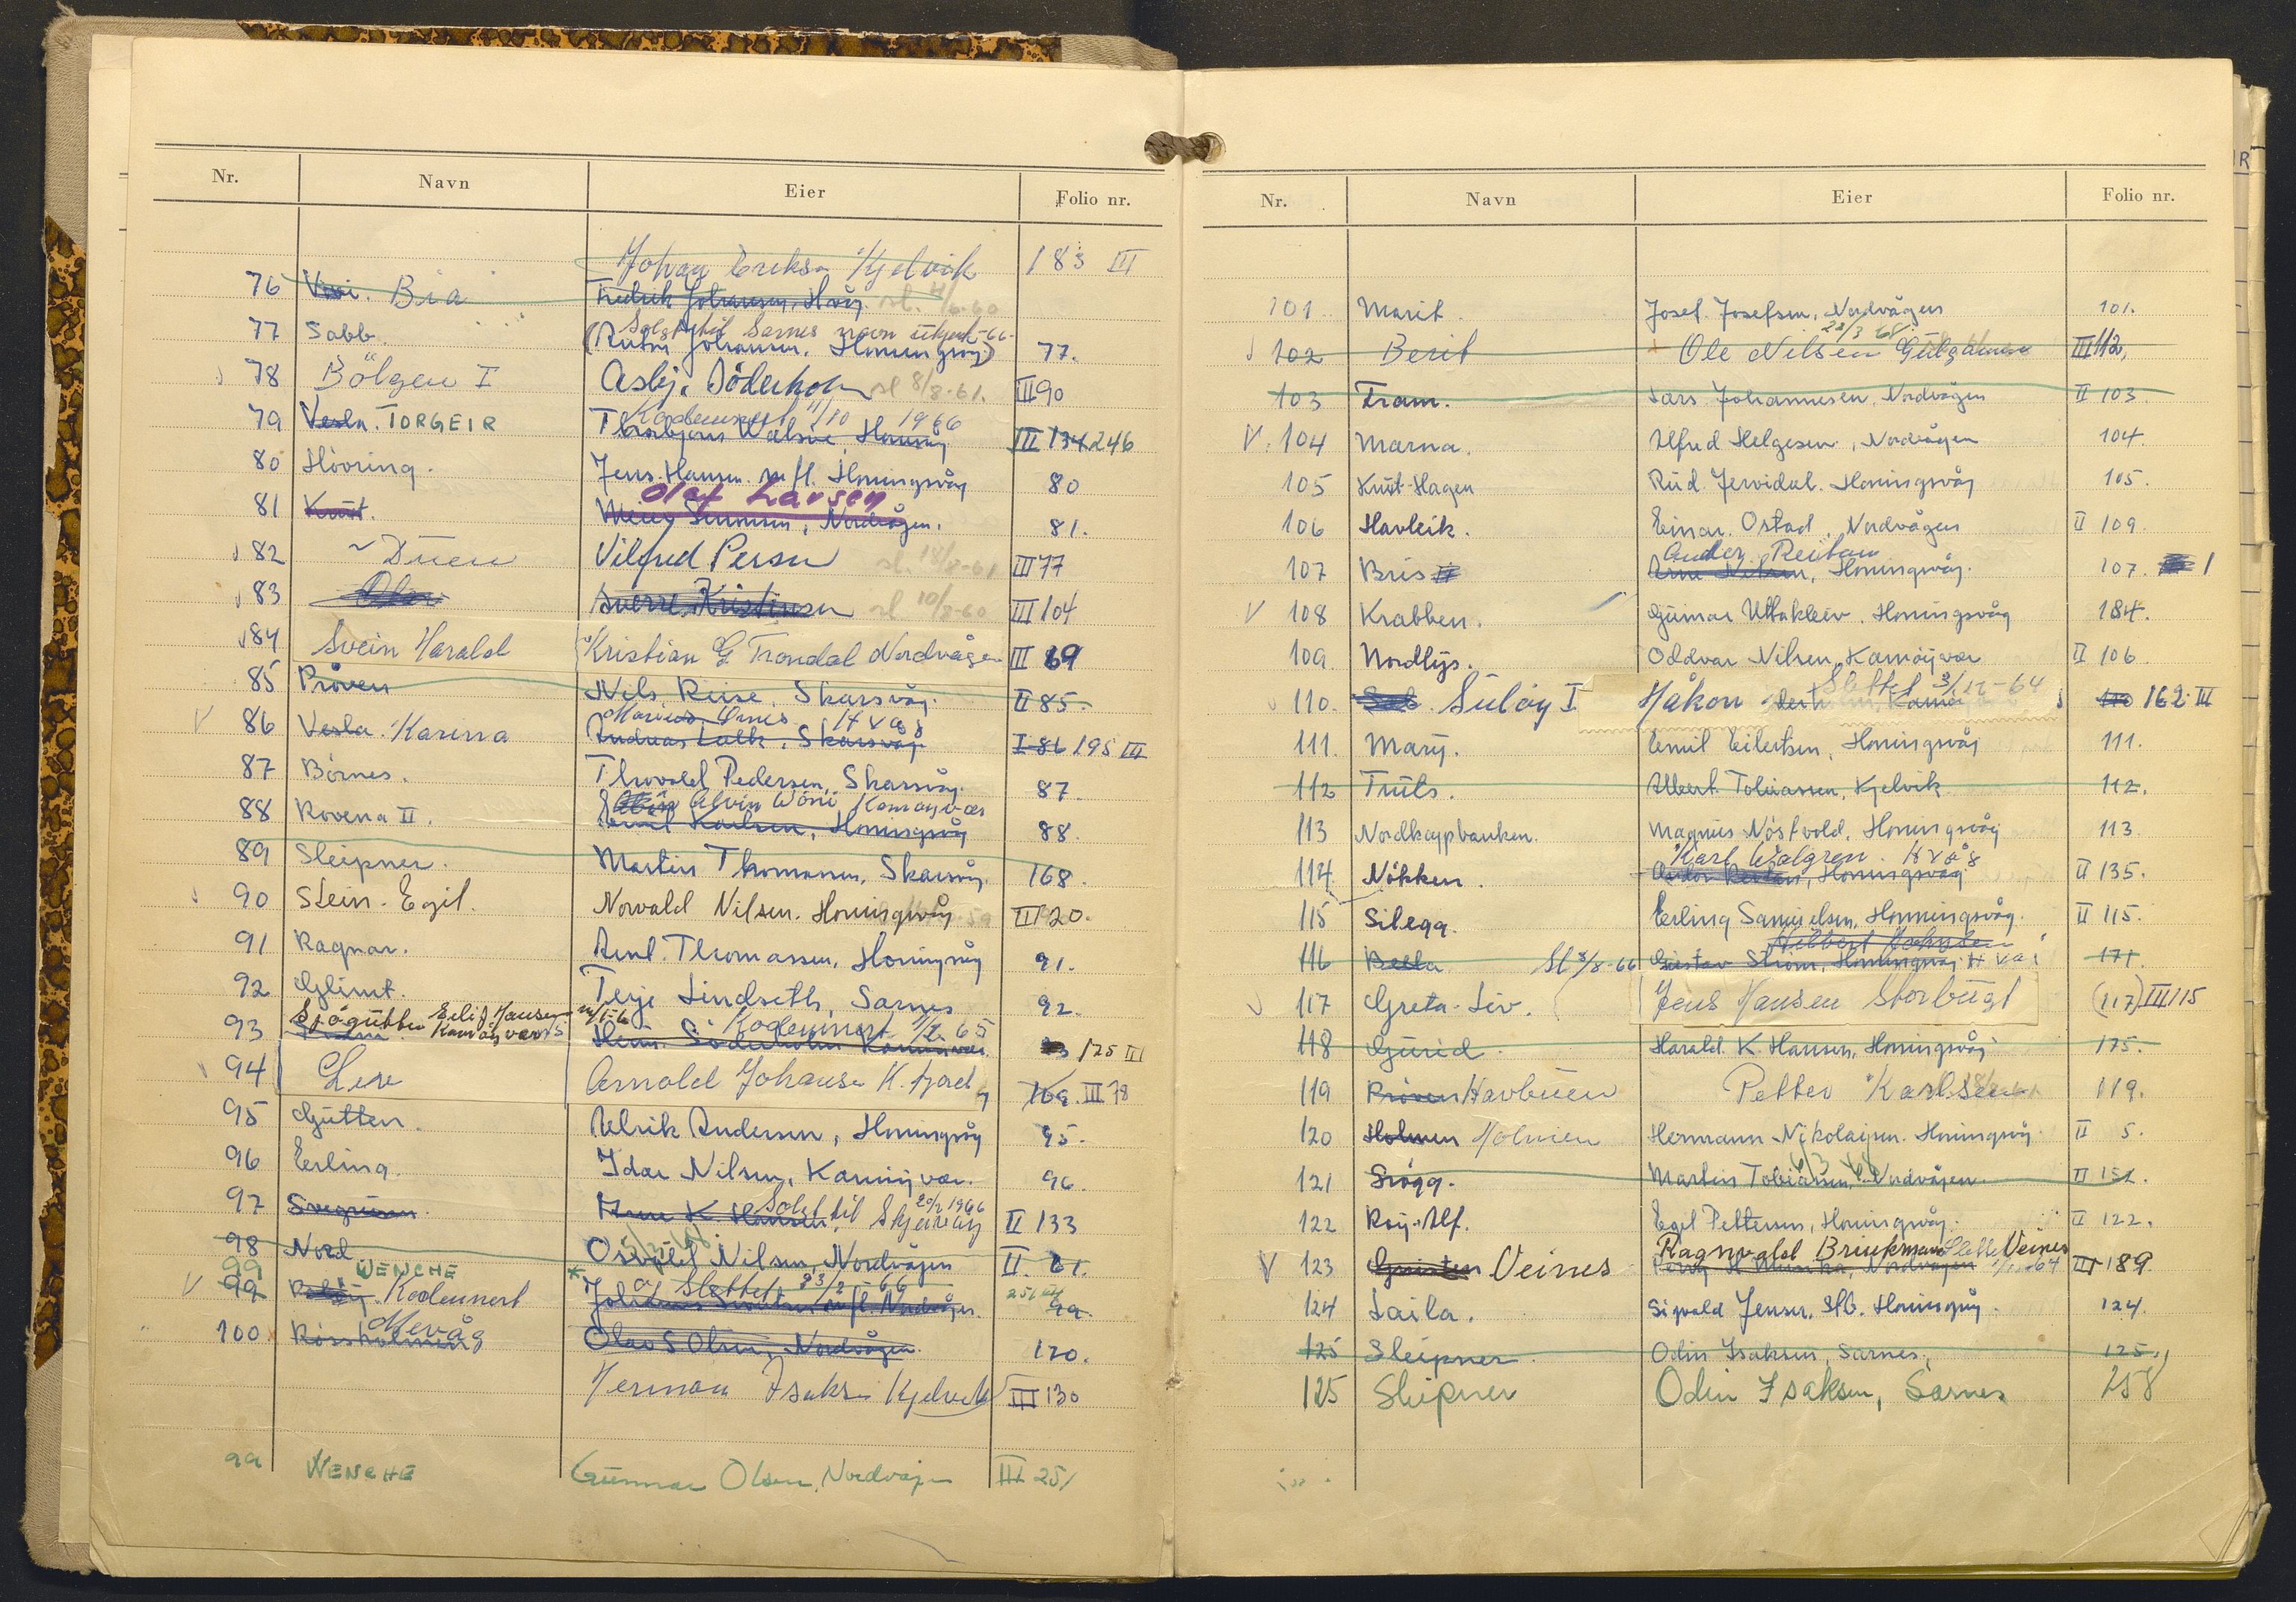 Nr. Navn Eier Folio nr.
Johan Eriksn Kjelvik 183 III
76 Bia Fredrik Johansen, Hvåg. sl. 6-60
77 Sabb. Solgt til Sarnes
Johansen. Honningsvåg) 77.
78 Bölgen I Asbj. Söderholm sl 8/8-61. III 90
79 Vesla. TORGEIR Kodemerket 11/10 1966
III 134 246
80 Hövring. Jens Hansen m fl. Honningsvåg 80
Olaf Larsen
81 Knut. Simonsen, Nordvågen. 81.
82 Duen Vilfred Persn sl. 18/8-61 III 77
83 Sverre Kristiansen sl 10/8-60 III 104
84 Svein Harald Kristian G Trondal Nordvågen III 69
85 Pröven Nils Riise. Skarsvåg. II 85.
Marius Ornes Hvåg
86 Vesla. Karina Andreas Falk, Skarsvåg I 86 195 III
87 Börnes. Thorvald Pedersen, Skarsvåg. 87.
Alvin Wöni Kamøyvær
88 Rovena II. Karlsen, Honningsvåg 88.
89 Sleipner. Martin Thomassen, Skarsvåg. 168.
90 Stein-Egil. Norvald Nilsen. Honningsvåg III 20.
91 Ragnar. Arnt. Thomassen, Honningsvåg 91.
92 Glimt. Terje Lindseth, Sarnes 92.
Sjøgutten Eilif Hansen
93 Kamøyvær Kodemerket 1/2 65
Söderholm Kamøyvær 125 III
94 Arnold Johansen K. fjord 169. III 78
95 Gutten. Ulrik Andersen, Honningsvåg 95.
96 Erling. Idar Nilsen, Kamöyvær. 96.
97 Solgt til Skjervøy 20/2 1966
K. Hansen II 133
98 Nord Osvald Nilsen, Nordvågen II. 61.
99 WENCHE
99 Kodemerket Slettet 23/2-66 251
99.
Mevåg
100 Rossholmen Olav S Olsen, Nordvågen. 120.
Herman Isaksn Kjelvik III 130
99 WENCHE Gunnar Olsen, Nordvågen III 251
Nr. Navn Eier Folio nr.
101 Marit. Josef. Josefsen, Nordvågen 101.
28/3 68
102 Berit Ole Nilsen III 112,
103 Fram. Lars Johannesen, Nordvågen II 103.
V. 104 Marna. Alfred Helgesen, Nordvågen 104.
105 Knut-Hagen Rud. Jervidal. Honningsvåg 105.
106 Havleik. Einar. Ostad, Nordvågen II 109.
Reitan
107 Bris II Arne Nilsen, Honningsvåg. 107. 1
V 108 Krabben. Gunnar Uttakleiv. Honningsvåg 184.
109 Nordlys. Oddvar Nilsen, Kamöyvær II 106
Slettet 3/12-64
110. Suløy I Håkon 110 162 III
111. Mary. Emil Eilertsen, Honningsvåg 111.
112 Truls. Albert Tobiassen, Kjelvik 112.
113 Nordkappbanken. Magnus Nöstvold, Honningsvåg 113
Karl Walgren. Hvåg
114 Nökken. Reitan, Honningsvåg II 135.
115 Silegg. Erling Samuelsen, Honningsvåg. II 115.
116 Bella Sl 3/8-66 Gustav Ström, Honningsvåg 171
117 Greta-Liv. Jens Hansen Storbugt (117) III 115
118 Gurid. Harald. K. Hansen, Honningsvåg 175.
119 Pröven Havbuen Petter Karlsen 119.
120 Holmen Holmen Hermann Nikolaisen. Honningsvåg. II 5.
121 Snögg. Martin Tobiassen, Nordvågen. II 151.
122 Roy-Alf. Egil Pettersen, Honningsvåg. II 122.
Ragnvald Brinkman Slettet Veines
V 123 Veines Nordvågen III 189
124 Laila. Sigvald Jensen. Stb. Honningsvåg. 124.
125 Sleipner. Odin Isaksen, Sarnes, 125.
125 Sleipner Odin Isaksen, Sarnes 258